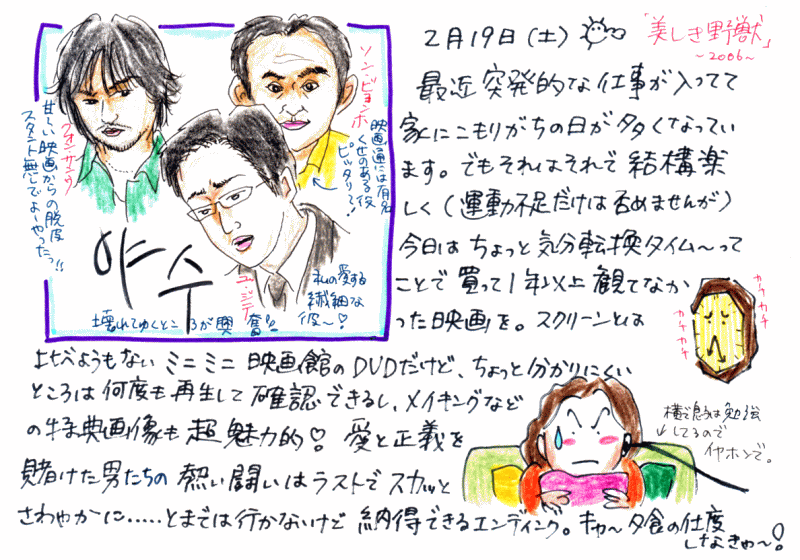 2月19日(土)
「美しき野獣」
~2006~
最近 突発的な仕事が入ってて
家にこもりがちの日が多くなってい
ます。でもそれはそれで 結構楽
しく(運動不足だけは否めませんが)
今日は ちょっと気分転換タイム~って
ことで 買って1年以上 観てなか
った映画を。スクリーンとは
比べようもない ミニミニ 映画館のDVDだけど、ちょっと分かりにくい
ところは 何度も 再生して 確認できるし、メイキングなど
の特典画像も 超 魅力的♡ 愛と正義を
賭けた男たちの 熱い闘いは ラストで スカッと
さわやかに・・・・・とまでは行かないけど 納得できるエンディング。キャ~夕食の仕度
しなきゃ~!
甘~い映画からの脱皮
スタント無しでよ~やったっ!!
クォン・サンウ
ソン・ビョンホ
映画通には有名
くせのある役
ピッタリで!
야수
ユ・ジテ
私の愛する
繊細な
彼~♡
壊れてゆくところが興奮!!
カチカチ
カチカチ
横で息子は勉強
してるので
イヤホンで。